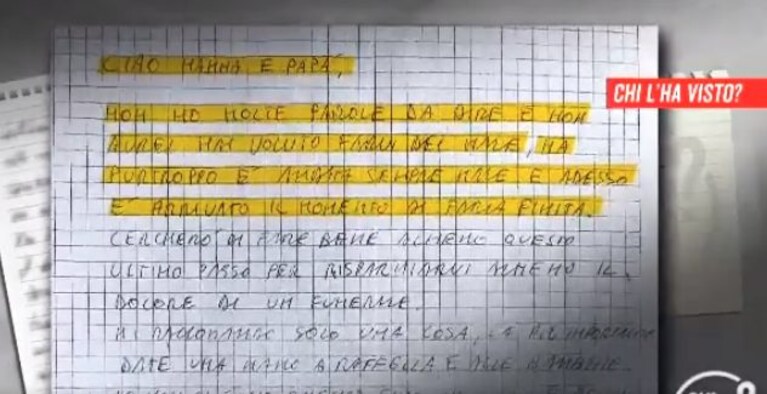 CIAO MAMMA E PAPÀ,
CHI L'HA VISTO?
NON HO MOLTE PAROLE DA DIRE E NON
AVREI MAI VOLUTO FARVI DEL MALE, MA
PURTROPPO E' ANDATA SEMPRE MALE E ADESSO
E' ARRIVATO IL MOMENTO DI FARLA FINITA.
CERCHERO' DI FARE BENE ALMENO QUESTO
ULTIMO PASSO PER RISPARMIARVI ALMENO IL
DOLORE DI UN FUNERALE.
MI RACCOMANDO SOLO UNA COSA, LA PIÙ IMPORTANTE
DATE UNA MANO A RAFFELLA E ALLE BAMBINE.